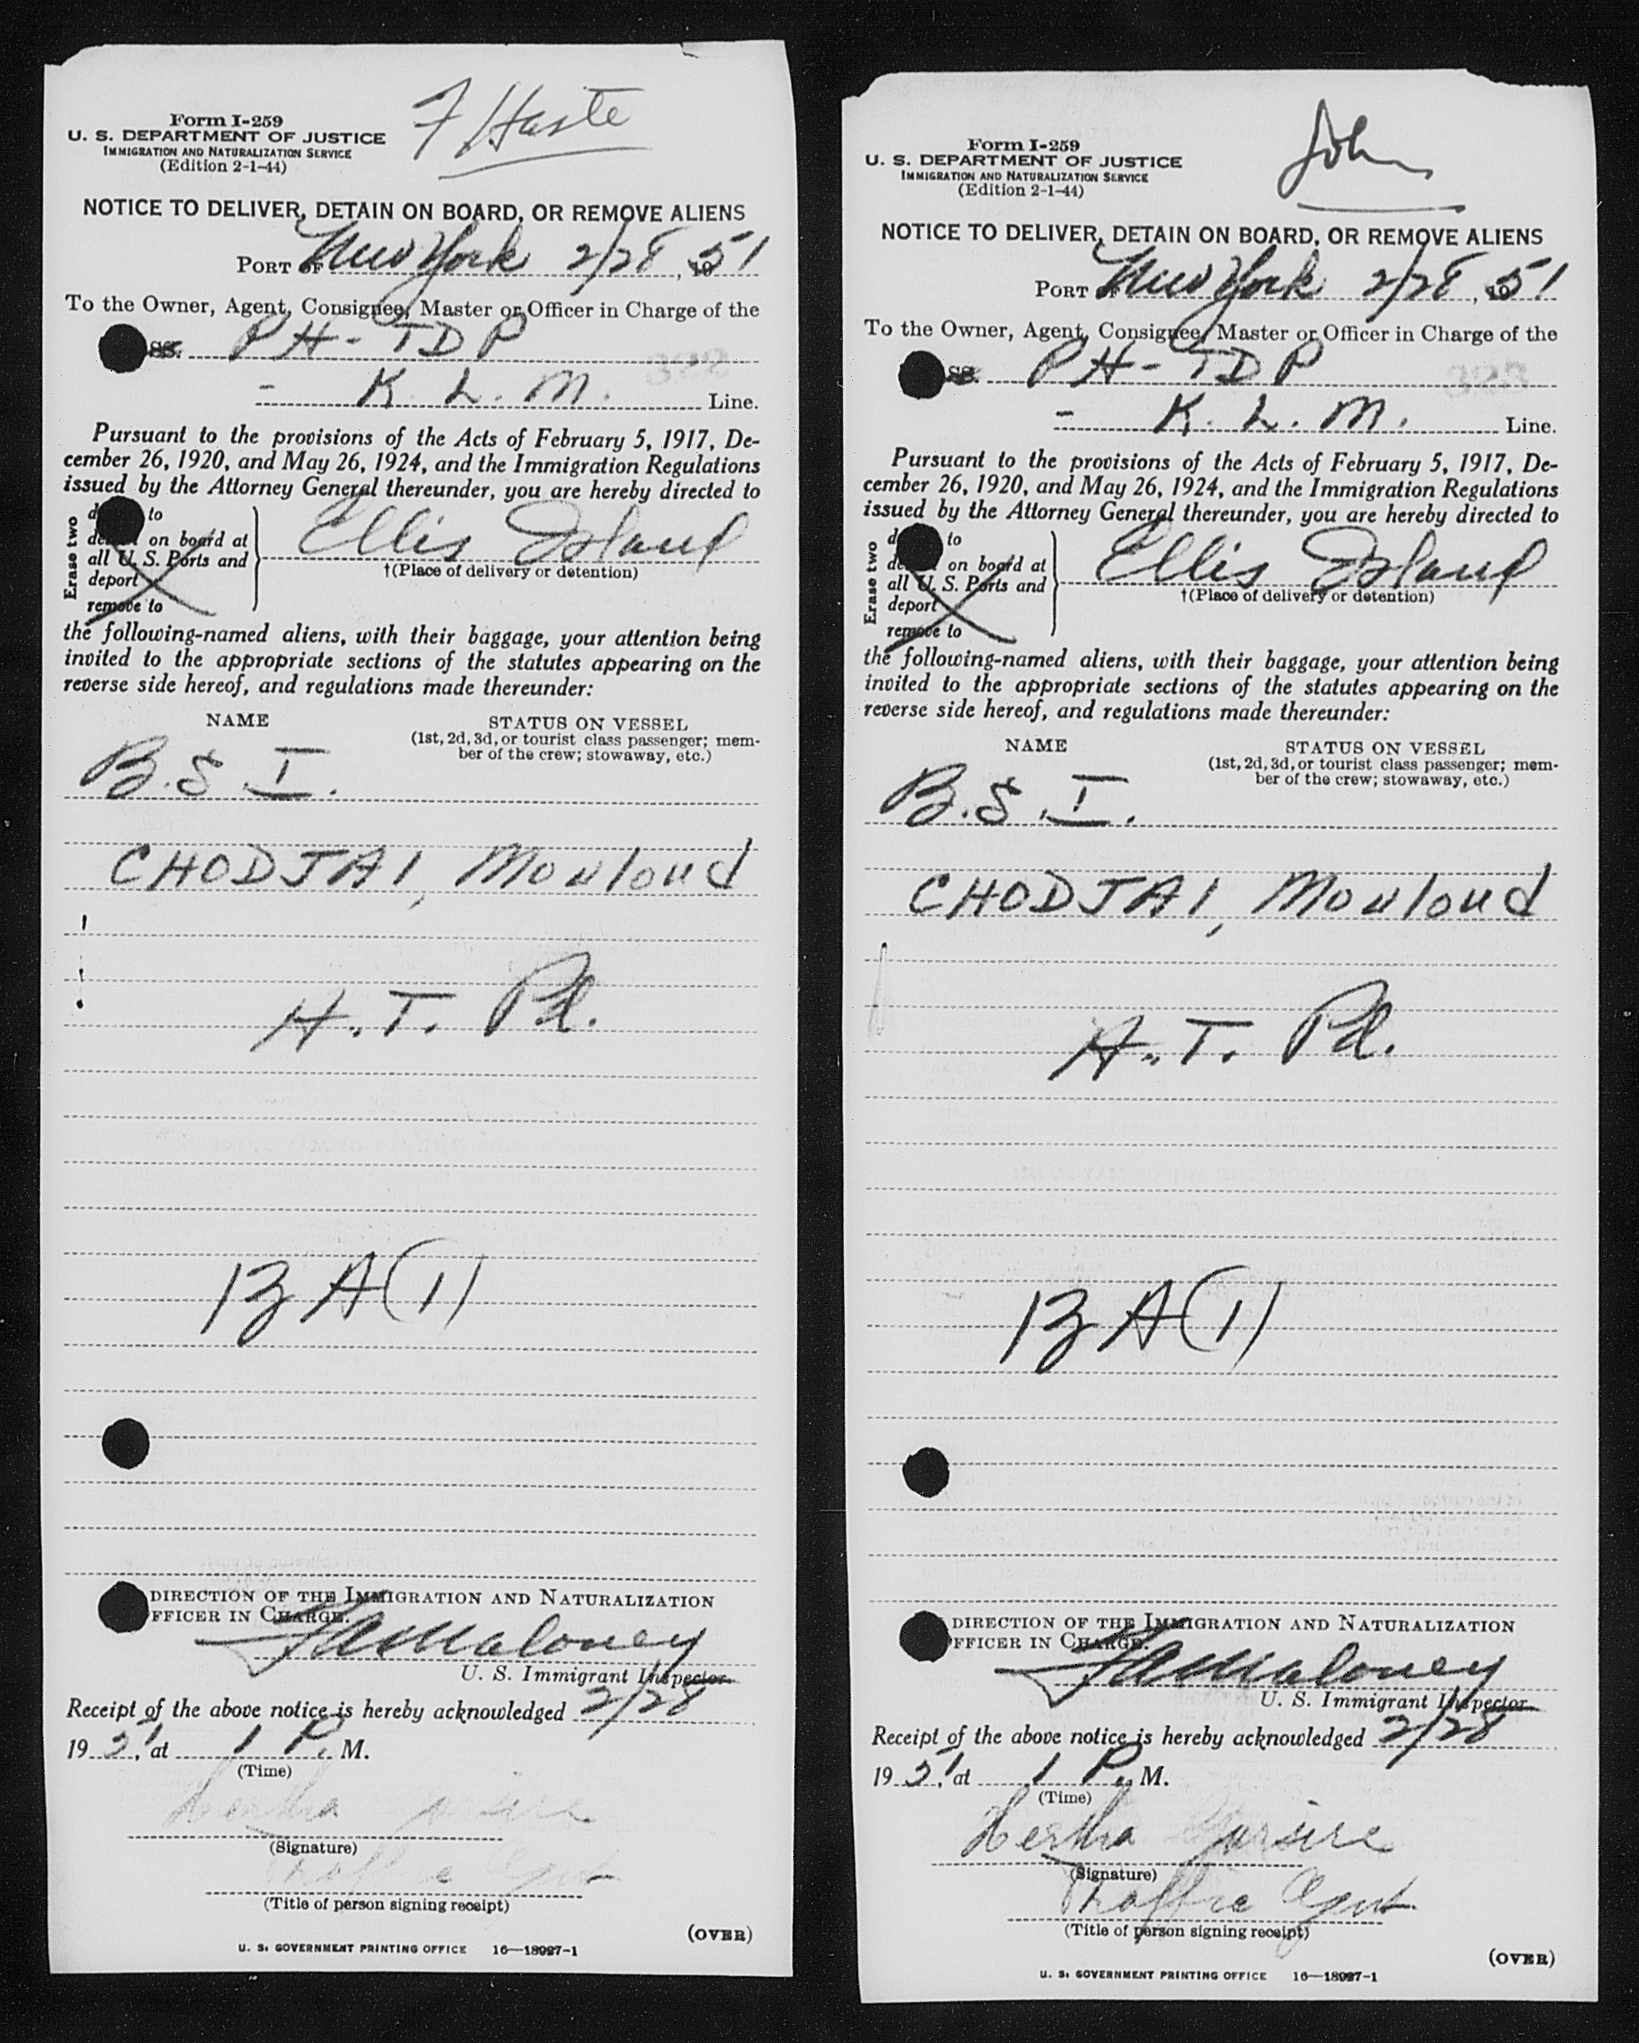 Form I-259
U. S. DEPARTMENT OF JUSTICE
IMMIGRATION AND NATURALIZATION SERVICE
(Edition 2-1-44)
F Haste
NOTICE TO DELIVER, DETAIN ON BOARD, OR REMOVE ALIENS
PORT OF New York 2/28, 1951
To the Owner, Agent, Consignee, Master or Officer in Charge of the
SS. PH-TDP
- K. L. M. Line.
Pursuant to the provisions of the Acts of February 5, 1917, De-
cember 26, 1920, and May 26, 1924, and the Immigration Regulations
issued by the Attorney General thereunder, you are hereby directed to
Erase two
to
on board at
all U. S. Ports and
deport
remove to
Ellis Island
†(Place of delivery or detention)
the following-named aliens, with their baggage, your attention being
invited to the appropriate sections of the statutes appearing on the
reverse side hereof, and regulations made thereunder:
NAME STATUS ON VESSEL
(1st, 2d, 3d, or tourist class passenger; mem-
ber of the crew; stowaway, etc.)
B.S.I.
CHODJAI, Mouloud
H.T. Pd.
13 A(1)
DIRECTION OF THE IMMIGRATION AND NATURALIZATION
FFICER IN CHARGE.
FAMaloney
U. S. Immigrant Inspector
Receipt of the above notice is hereby acknowledged 2/28
1951, at 1 P. M.
(Time)
Hertha
(Signature)
Traffic Agent
(Title of person signing receipt)
(OVER)
U. S. GOVERNMENT PRINTING OFFICE 16—18927-1
Form I-259
U. S. DEPARTMENT OF JUSTICE
IMMIGRATION AND NATURALIZATION SERVICE
(Edition 2-1-44)
John
NOTICE TO DELIVER, DETAIN ON BOARD, OR REMOVE ALIENS
PORT OF New York 2/28, 1951
To the Owner, Agent, Consignee, Master or Officer in Charge of the
SS. PH-TDP
- K. L. M. Line.
Pursuant to the provisions of the Acts of February 5, 1917, De-
cember 26, 1920, and May 26, 1924, and the Immigration Regulations
issued by the Attorney General thereunder, you are hereby directed to
Erase two
to
on board at
all U. S. Ports and
deport
remove to
Ellis Island
†(Place of delivery or detention)
the following-named aliens, with their baggage, your attention being
invited to the appropriate sections of the statutes appearing on the
reverse side hereof, and regulations made thereunder:
NAME STATUS ON VESSEL
(1st, 2d, 3d, or tourist class passenger; mem-
ber of the crew; stowaway, etc.)
B.S.I.
CHODJAI, Mouloud
H.T. Pd.
13 A(1)
DIRECTION OF THE IMMIGRATION AND NATURALIZATION
FFICER IN CHARGE.
FAMaloney
U. S. Immigrant Inspector
Receipt of the above notice is hereby acknowledged 2/28
1951, at 1 P. M.
(Time)
Hertha
(Signature)
Traffic Agent
(Title of person signing receipt)
(OVER)
U. S. GOVERNMENT PRINTING OFFICE 16—18927-1